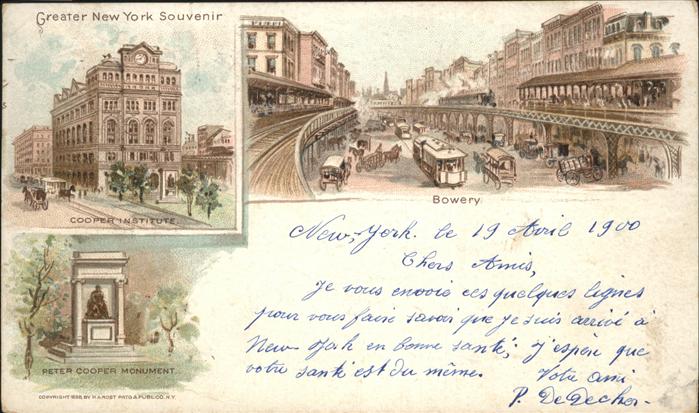 Greater New York Souvenir
COOPER INSTITUTE.
Bowery
New-York. le 19 Avril 1900
Chers Amis,
Je vous envoie ces quelques lignes
pour vous faire savoir que je suis arrivé à
New York en bonne santé; j'espère que
votre santé est du même. Votre ami
P. De Decker-
PETER COOPER MONUMENT.
COPYRIGHT 1898, BY H.A.ROST PRTG & PUBL.CO. N.Y.